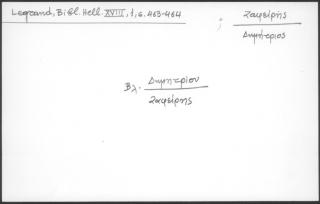 Legrand, Bibl. Hell. XVIII, 1, σ. 463-464
; Ζαφείρης
Δημήτριος
Βλ. Δημητρίου
Ζαφείρης